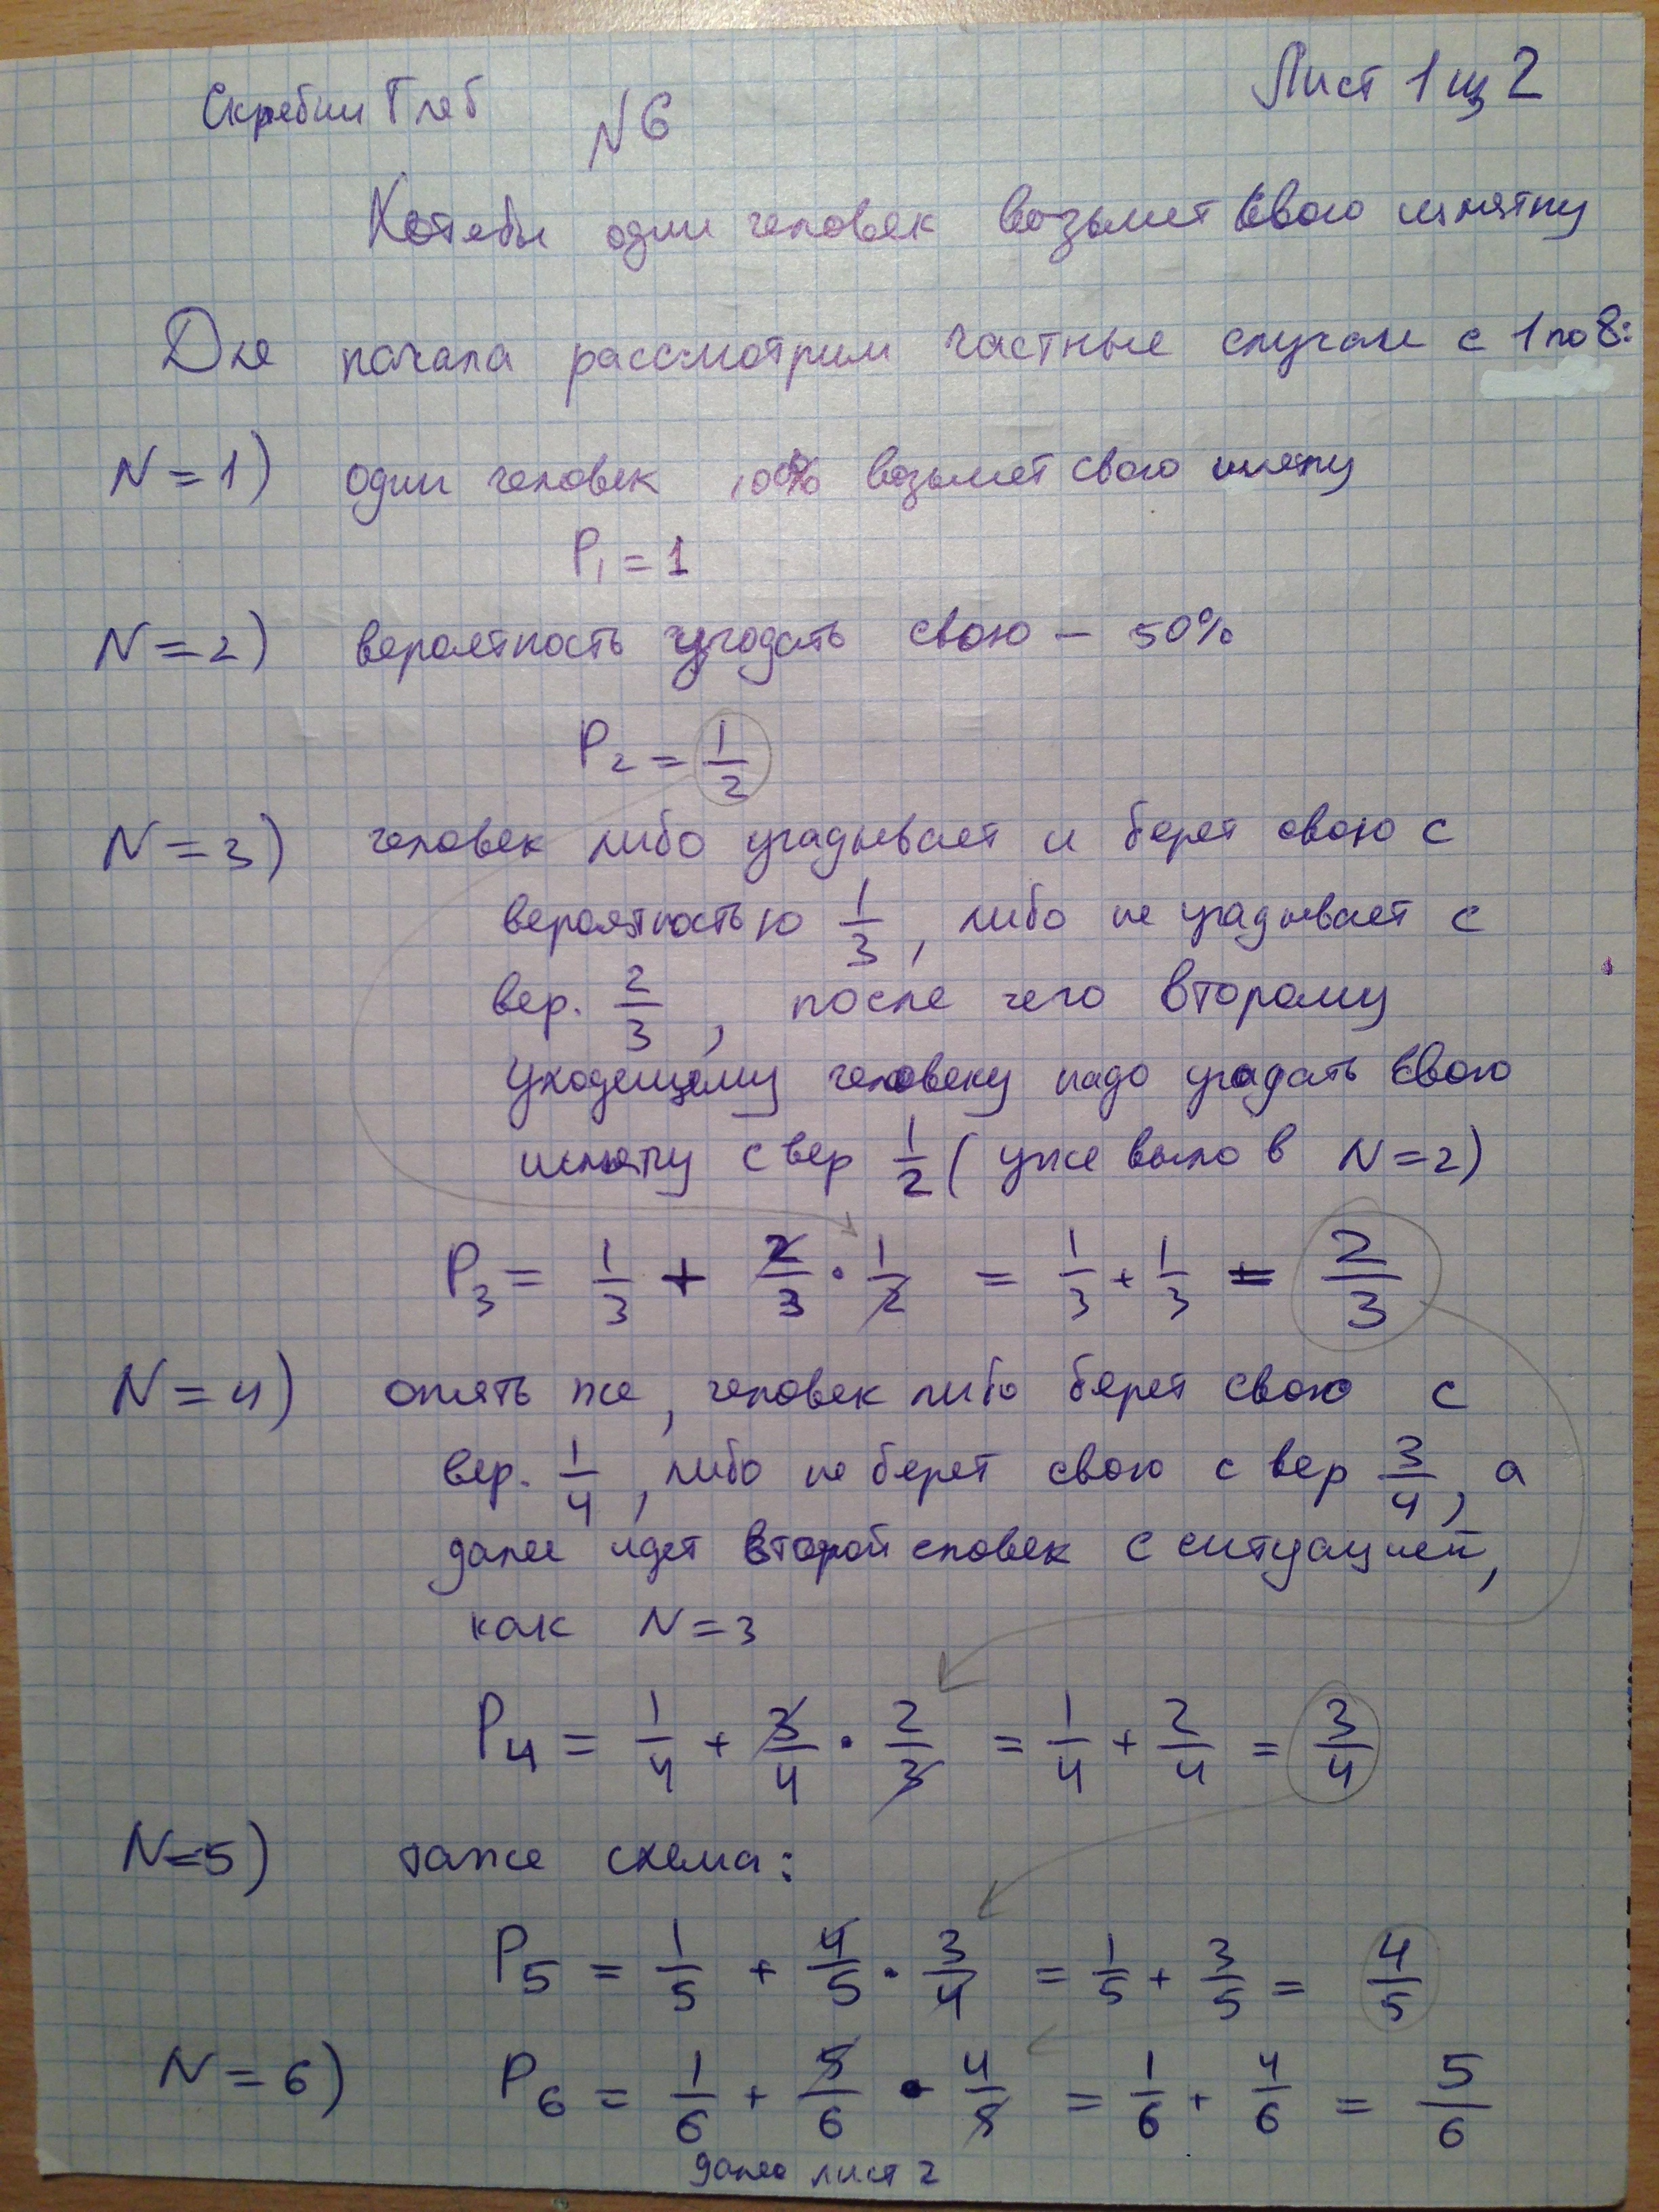 Скрябин Глеб №6 Лист 1 из 2
Хотябы один человек возьмет свою шляпу
Для начала рассмотрим частные случаи с 1 по 8:
N=1) один человек 100% возьмет свою шляпу
P₁ = 1
N=2) вероятность угодать свою – 50%
P₂ = 1/2
N=3) человек либо угадывает и берет свою с
вероятностью 1/3, либо не угадывает с
вер. 2/3, после чего второму
уходещему человеку надо угадать свою
шляпу с вер 1/2 (уже было в N=2)
P₃ = 1/3 + 2/3 · 1/2 = 1/3 + 1/3 = 2/3
N=4) опять же, человек либо берет свою с
вер. 1/4, либо не берет свою с вер 3/4, а
далее идет второй еловек с ситуацией,
как N=3
P₄ = 1/4 + 3/4 · 2/3 = 1/4 + 2/4 = 3/4
N=5) таже схема:
P₅ = 1/5 + 4/5 · 3/4 = 1/5 + 3/5 = 4/5
N=6) P₆ = 1/6 + 5/6 · 4/5 = 1/6 + 4/6 = 5/6
далее лист 2